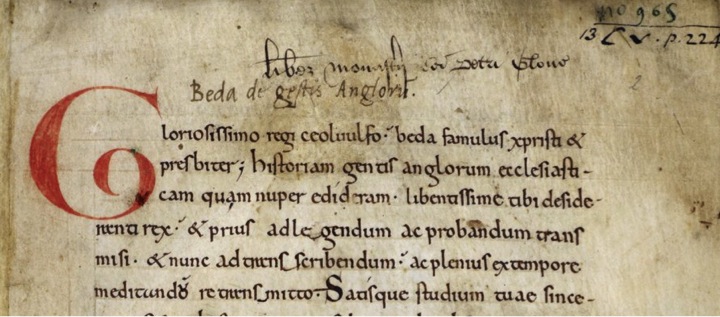 no 965
13 C V. p. 224
liber monastij sci Petri Glouc
2
Beda de gestis Anglorū.
Gloriosissimo regi ceoluulfo· beda famulus xpristi &
presbiter; historiam gentis anglorum ecclesiasti-
cam quam nuper edideram· libentissime tibi deside-
renti rex· & prius ad legendum ac probandum trans
misi· & nunc ad trens scribendum· ac plenius ex tempore
meditandū retrens mitto· Satisque studium tuae since-